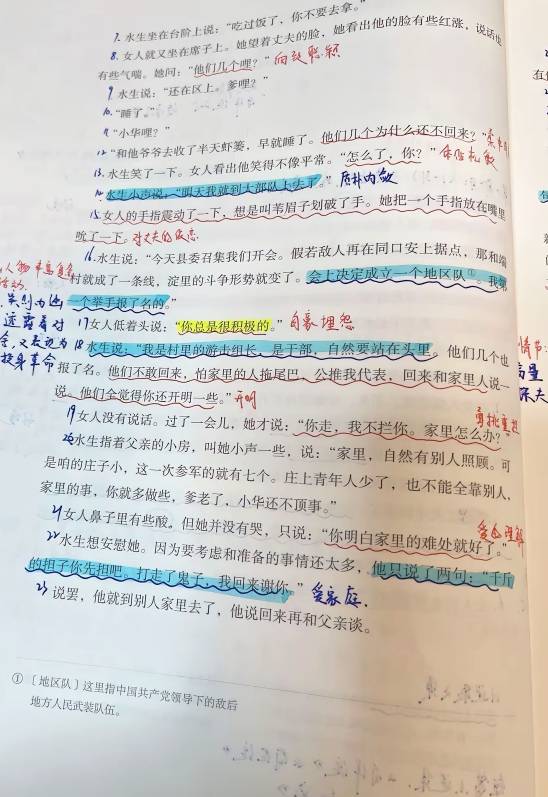 7. 水生坐在台阶上说：“吃过饭了，你不要去拿。”
8. 女人就又坐在席子上。她望着丈夫的脸，她看出他的脸有些红涨，说话也
有些气喘。她问：“他们几个哩？”
9 水生说：“还在区上。爹哩？”
10. “睡了。”
11 “小华哩？”
12. “和他爷爷去收了半天虾篓，早就睡了。他们几个为什么还不回来？”
13. 水生笑了一下。女人看出他笑得不像平常。“怎么了，你？” 体贴机敏
14 水生小声说：“明天我就到大部队上去了。” 质朴内敛
15. 女人的手指震动了一下，想是叫苇眉子划破了手。她把一个手指放在嘴里
吮了一下。
16. 水生说：“今天县委召集我们开会。假若敌人再在同口安上据点，那和端
村就成了一条线，淀里的斗争形势就变了。会上决定成立一个地区队①。我第
一个举手报了名的。”
17 女人低着头说：“你总是很积极的。” 自豪 埋怨
18 水生说：“我是村里的游击组长，是干部，自然要站在头里。他们几个也
报了名。他们不敢回来，怕家里的人拖尾巴。公推我代表，回来和家里人说一
说。他们全觉得你还开明一些。” 开明
19 女人没有说话。过了一会儿，她才说：“你走，我不拦你。家里怎么办？”
勇挑重担
20 水生指着父亲的小房，叫她小声一些，说：“家里，自然有别人照顾。可
是咱的庄子小，这一次参军的就有七个。庄上青年人少了，也不能全靠别人，
家里的事，你就多做些，爹老了，小华还不顶事。”
21 女人鼻子里有些酸，但她并没有哭，只说：“你明白家里的难处就好了。”
22 水生想安慰她。因为要考虑和准备的事情还太多，他只说了两句：“千斤
的担子你先担吧。打走了鬼子，我回来谢你。” 爱家庭.
23 说罢，他就到别人家里去了，他说回来再和父亲谈。
① 〔地区队〕这里指中国共产党领导下的敌后
地方人民武装队伍。